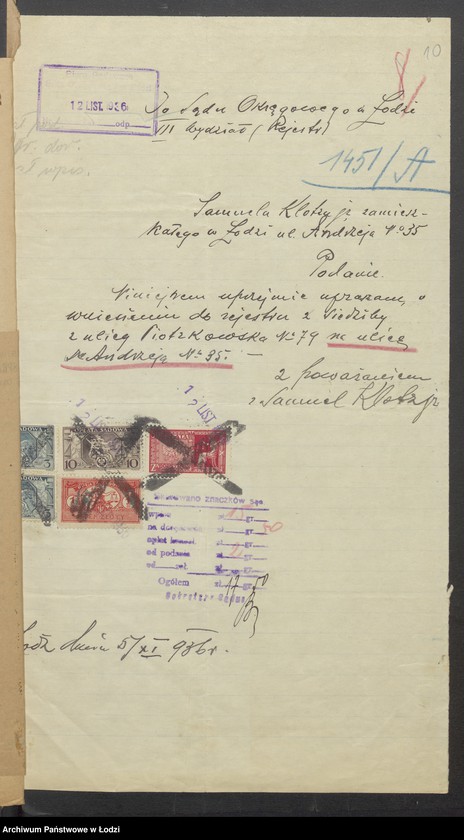 10
12 LIST. 1936
odp.
Do Sądu Okręgowego w Łodzi
VIII Wydział (Rejestr)
1451/A
Samuela Klotz jr zamiesz-
kałego w Łodzi ul Andrzeja No 35
Podanie.
Niniejszem uprzejmie upraszam, o
wniesieniu do rejestru z siedziby
z ulicy Piotrkowska No 79 na ulicę
Andrzeja No 35. —
z poważaniem
Samuel Klotz jr
12 LIST.
SĄDOWA
OPŁATA SĄDOWA
10 10
znaczków są:
wpis zł. 15 gr.
na zł. gr. 50
opłat zł. gr.
od podania zł. 2 gr.
od zał. zł. gr.
Ogółem zł. 17 gr. 50
Sekretarz Sądu
dnia 5/XI 936 r.
Archiwum Państwowe w Łodzi